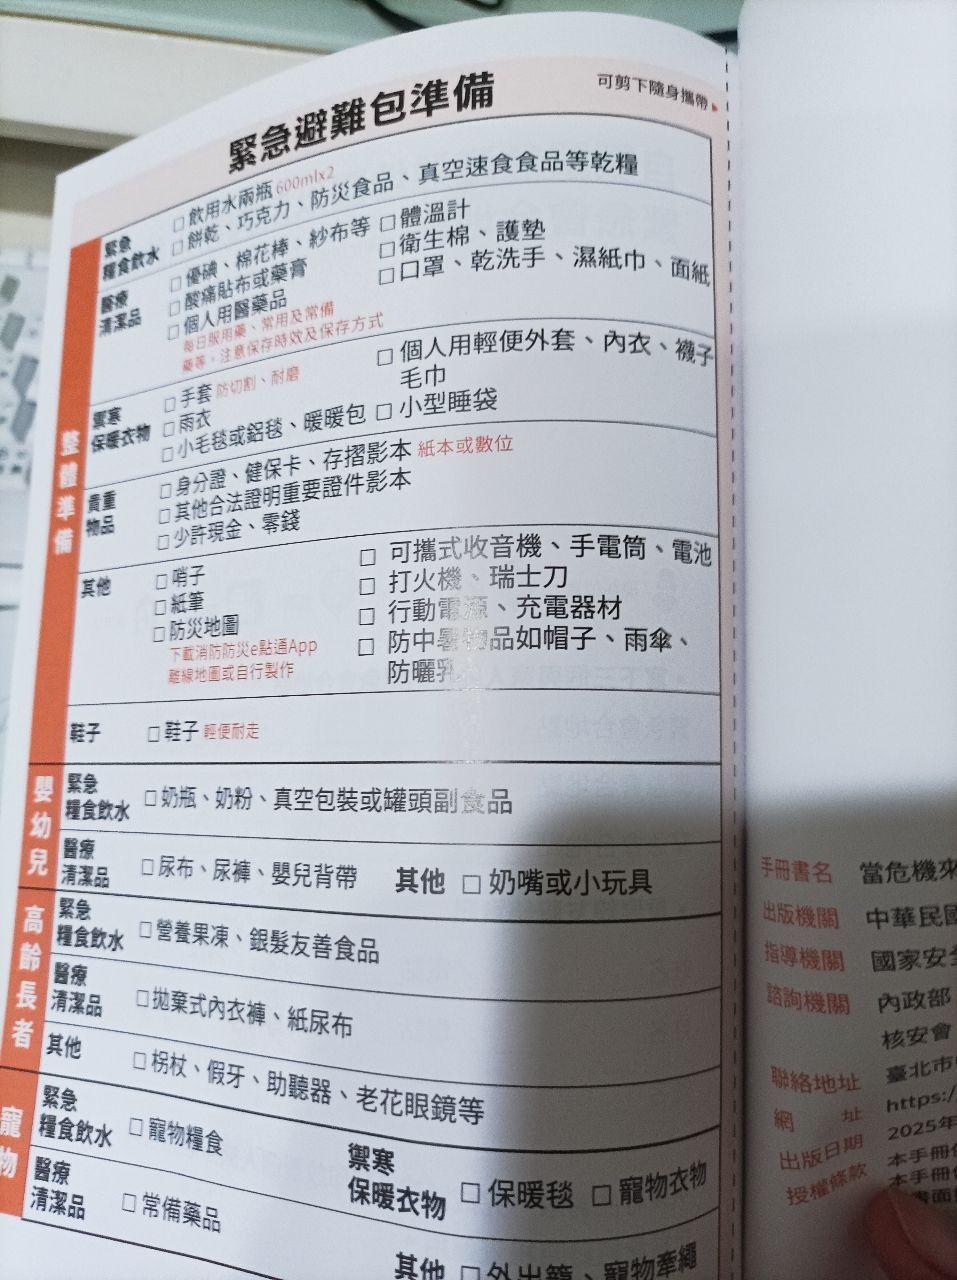 緊急避難包準備
可剪下隨身攜帶
整體準備
緊急
糧食飲水
□ 飲用水兩瓶 600mlx2
□ 餅乾、巧克力、防災食品、真空速食食品等乾糧
醫療
清潔品
□ 優碘、棉花棒、紗布等
□ 酸痛貼布或藥膏
□ 個人用醫藥品
每日服用藥、常用及常備
藥等，注意保存時效及保存方式
□ 體溫計
□ 衛生棉、護墊
□ 口罩、乾洗手、濕紙巾、面紙
禦寒
保暖衣物
□ 手套 防切割、耐磨
□ 雨衣
□ 小毛毯或鋁毯、暖暖包
□ 個人用輕便外套、內衣、襪子
毛巾
□ 小型睡袋
貴重
物品
□ 身分證、健保卡、存摺影本 紙本或數位
□ 其他合法證明重要證件影本
□ 少許現金、零錢
其他
□ 哨子
□ 紙筆
□ 防災地圖
下載消防防災e點通App
離線地圖或自行製作
□ 可攜式收音機、手電筒、電池
□ 打火機、瑞士刀
□ 行動電源、充電器材
□ 防中暑物品如帽子、雨傘、
防曬乳
鞋子
□ 鞋子 輕便耐走
嬰幼兒
緊急
糧食飲水
□ 奶瓶、奶粉、真空包裝或罐頭副食品
醫療
清潔品
□ 尿布、尿褲、嬰兒背帶
其他 □ 奶嘴或小玩具
高齡長者
緊急
糧食飲水
□ 營養果凍、銀髮友善食品
醫療
清潔品
□ 拋棄式內衣褲、紙尿布
其他
□ 柺杖、假牙、助聽器、老花眼鏡等
寵物
緊急
糧食飲水
□ 寵物糧食
禦寒
保暖衣物
□ 保暖毯 □ 寵物衣物
醫療
清潔品
□ 常備藥品
其他 □ 外出籠、寵物牽繩
手冊書名 當危機來
出版機關 中華民國
指導機關 國家安全
諮詢機關 內政部
核安會
聯絡地址 臺北市
網 址 https:/
出版日期 2025年
授權條款 本手冊
本手冊
書面